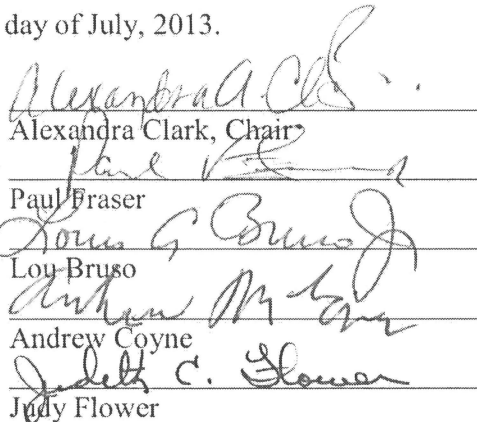 day of July, 2013.
Alexandra A. Cl
Alexandra Clark, Chair
Paul
Paul Fraser
Louis G Bruso Jr
Lou Bruso
Andrew M Coyne
Andrew Coyne
Judith C. Flower
Judy Flower